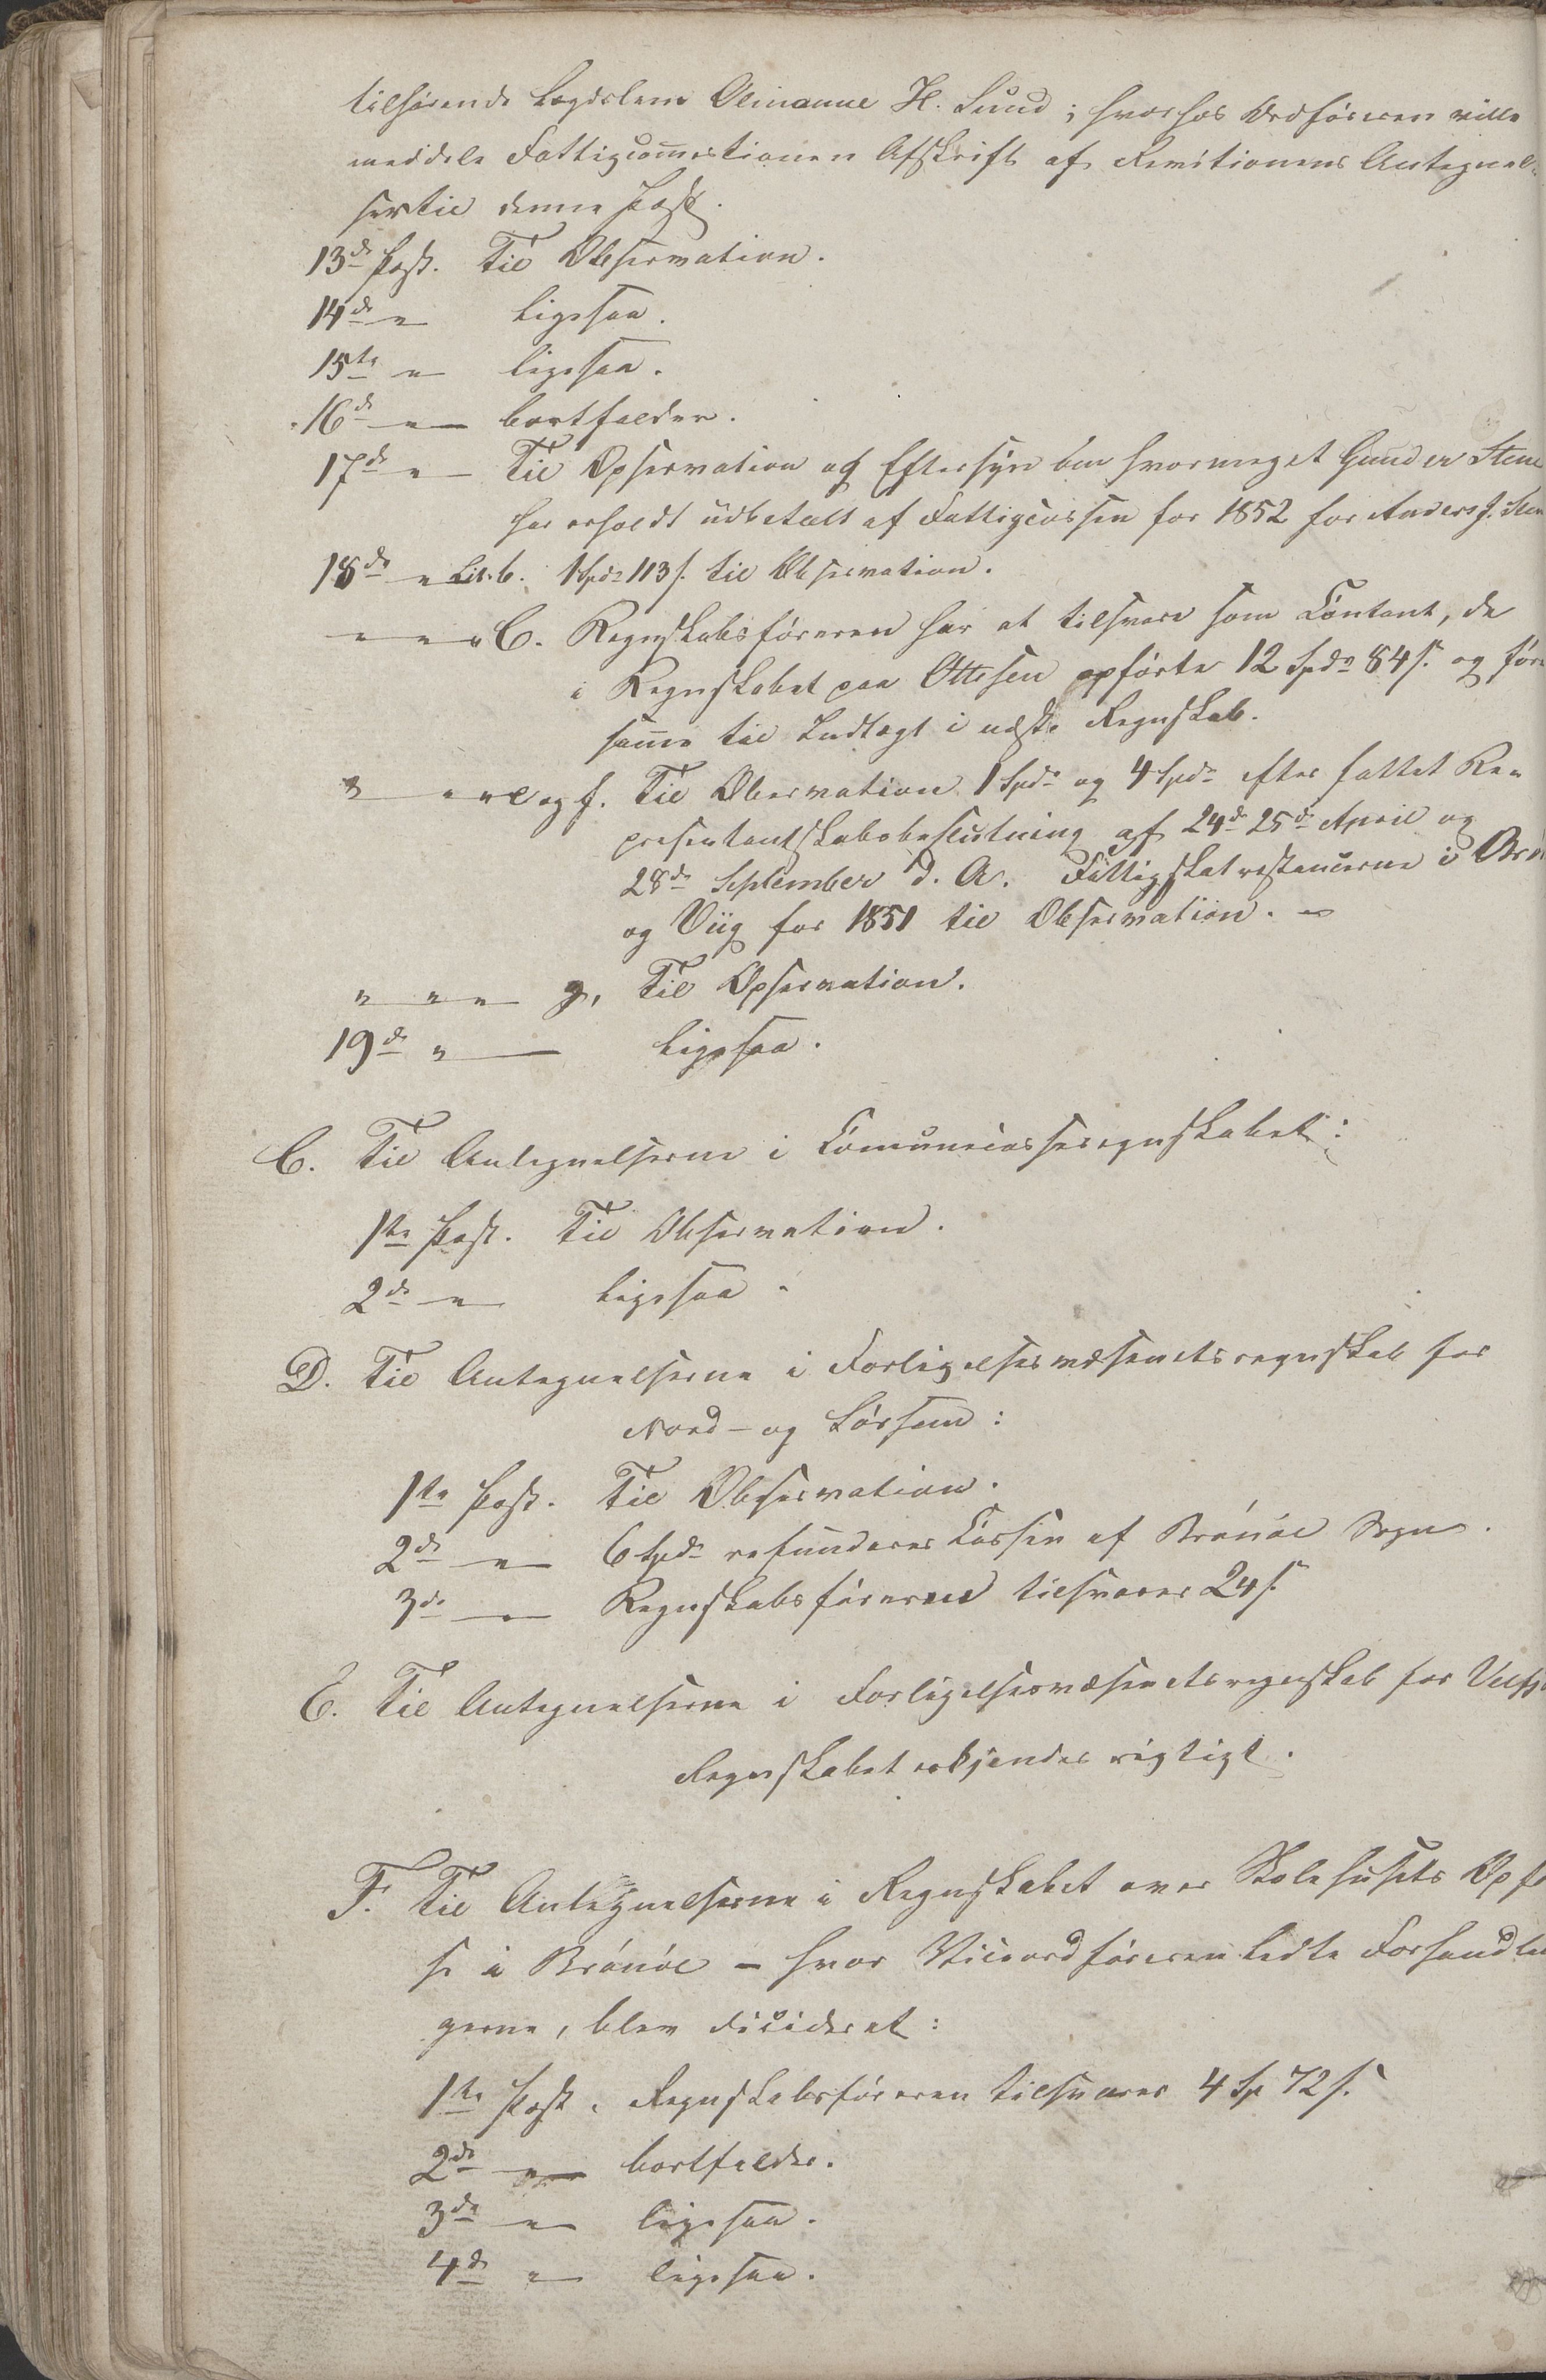 tilhørende Lægdslem Olinaune H. Lund; hvorhos Ordføreren ville
meddele Fattigcommestionen Afskrift af Revitionens Antegnel-
ser til denne Post.
13de Post. Til Observation.
14de " Ligesaa.
15te " ligesaa.
16de " bortfalder.
17de " Til Opservation og Eftersyn om hvormeget Gunder Sten
har erholdt udbetalt af Fattigcassen for 1852 for Anders J. Sten
18de " Lit. b. 1 Spd 113 s. til Observation.
" " " C. Regnskabsføreren har at tilsvare som Contant, de
i Regnskabet paa Ottesen opførte 12 Spd 84 s. og føre
samme til Indtægt i næste Regnskab.
" " " e og f. Til Obervation 1 Spd og 4 Spd efter fattet Re-
presentantskabsbeslutning af 24de 25de April og
28de September d. A. Fattigskatrestancerne i Brø
og Viig for 1851 til Observation. –
" " " g, Til Opservation.
19de " Ligesaa.
C. Til Antegnelserne i Comunecasseregnskabet:
1te Post. Til Observation.
2de " Ligesaa.
D. Til Antegnelserne i Forligelsesvæsenetsregnskab for
Nord- og Sørhem:
1te Post. Til Observation.
2de " 6 Spd refunderes Cassen af Brønøe Sogn.
3de " Regnskabsføreren tilsvarer 24 s.
E. Til Antegnelserne i Forligelsesvæsenetsregnskab for Velfj
Regnskabet erkjendes rigtigt.
F. Til Antegnelserne i Regnskabet over Skolehusets Opfø
se i Brønøe – hvor Viceordføreren ledte Forhandlin
gerne, blev dicideret:
1te Post. Regnskabsføreren tilsvarer 4 Sp 72 s.
2de " bortfalder.
3de " ligesaa.
4de " ligesaa.